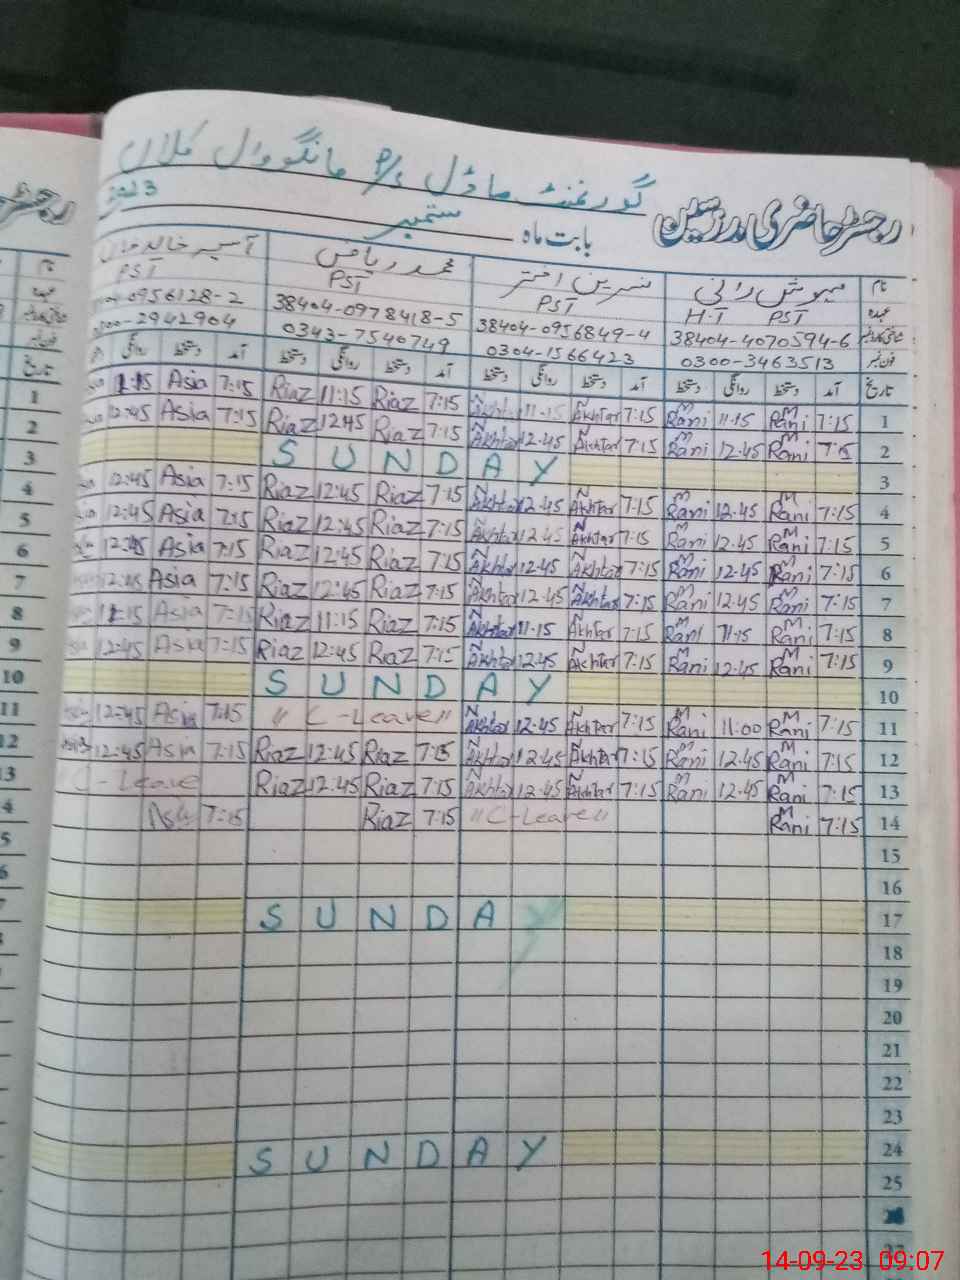 گورنمنٹ ماڈل P/S مانگووال کلاں
رجسٹر حاضری مدرسین بابت ماہ ستمبر 2023
نام مہوش رانی نسرین اختر محمد ریاض آسیہ خالد
عہدہ H.T PST PST PST PST
38404-4070594-6 38404-0956849-4 38404-0978418-5 0956128-2
0300-3463513 0304-1566423 0343-7540749 2942904
تاریخ آمد دستخط روانگی دستخط آمد دستخط روانگی دستخط آمد دستخط روانگی دستخط آمد دستخط روانگی
1 7:15 M Rani 11.15 M Rani 7:15 N Akhtar 11.15 7:15 Riaz 11:15 Riaz 7:15 Asia 11:15
2 7:15 M Rani 12.45 M Rani 7:15 N Akhtar 12.45 N Akhtar 7:15 Riaz 12:45 Riaz 7:15 Asia 12:45
3 SUNDAY
4 7:15 M Rani 12.45 M Rani 7:15 N Akhtar 12.45 N Akhtar 7:15 Riaz 12:45 Riaz 7:15 Asia 12:45
5 7:15 M Rani 12.45 M Rani 7:15 N Akhtar 12.45 N Akhtar 7:15 Riaz 12:45 Riaz 7:15 Asia 12:45
6 7:15 M Rani 12.45 M Rani 7:15 N Akhtar 12.45 N Akhtar 7:15 Riaz 12:45 Riaz 7:15 Asia 12:45
7 7:15 M Rani 12.45 M Rani 7:15 N Akhtar 12.45 N Akhtar 7:15 Riaz 12:45 Riaz 7:15 Asia 12:45
8 7:15 M Rani 11.15 M Rani 7:15 N Akhtar 11.15 N Akhtar 7:15 Riaz 11:15 Riaz 7:15 Asia 11:15
9 7:15 M Rani 12.45 M Rani 7:15 N Akhtar 12.45 N Akhtar 7:15 Riaz 12:45 Riaz 7:15 Asia 12:45
10 SUNDAY
11 7:15 M Rani 11.00 M Rani 7:15 N Akhtar 12.45 N Akhtar "C-Leave" 7:15 Asia 12:45
12 7:15 M Rani 12.45 M Rani 7:15 N Akhtar 12.45 N Akhtar 7:15 Riaz 12:45 Riaz 7:15 Asia 12:45
13 7:15 M Rani 12.45 M Rani 7:15 N Akhtar 12.45 N Akhtar 7:15 Riaz 12:45 Riaz "C-Leave
14 7:15 M Rani "C-Leave" 7:15 Riaz 7:15 Asia
15
16
17 SUNDAY
18
19
20
21
22
23
24 SUNDAY
25
26
27
14-09-23 09:07